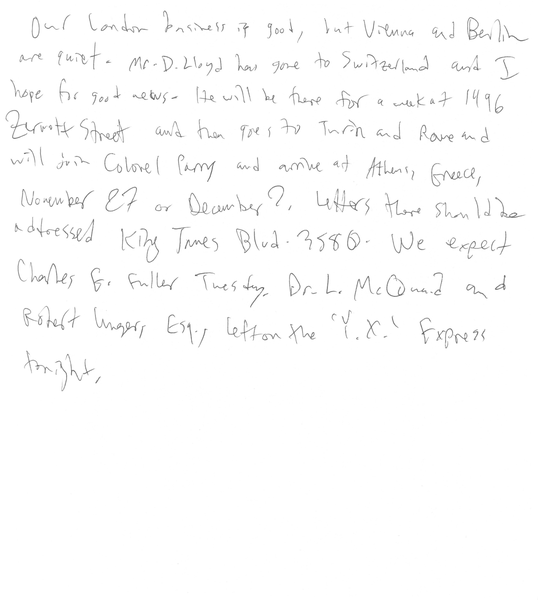 Our London business is good, but Vienna and Berlin
are quiet. Mr. D. Lloyd has gone to Switzerland and I
hope for good news. He will be there for a week at 1496
Zermott Street and then goes to Turin and Rome and
will join Colonel Parry and arrive at Athens, Greece,
November 27 or December 2. Letters there should be
addressed King James Blvd. 3580. We expect
Charles E. Fuller Tuesday. Dr. L. McQuaid and
Robert Unger, Esq., left on the "Y.X." Express
tonight.